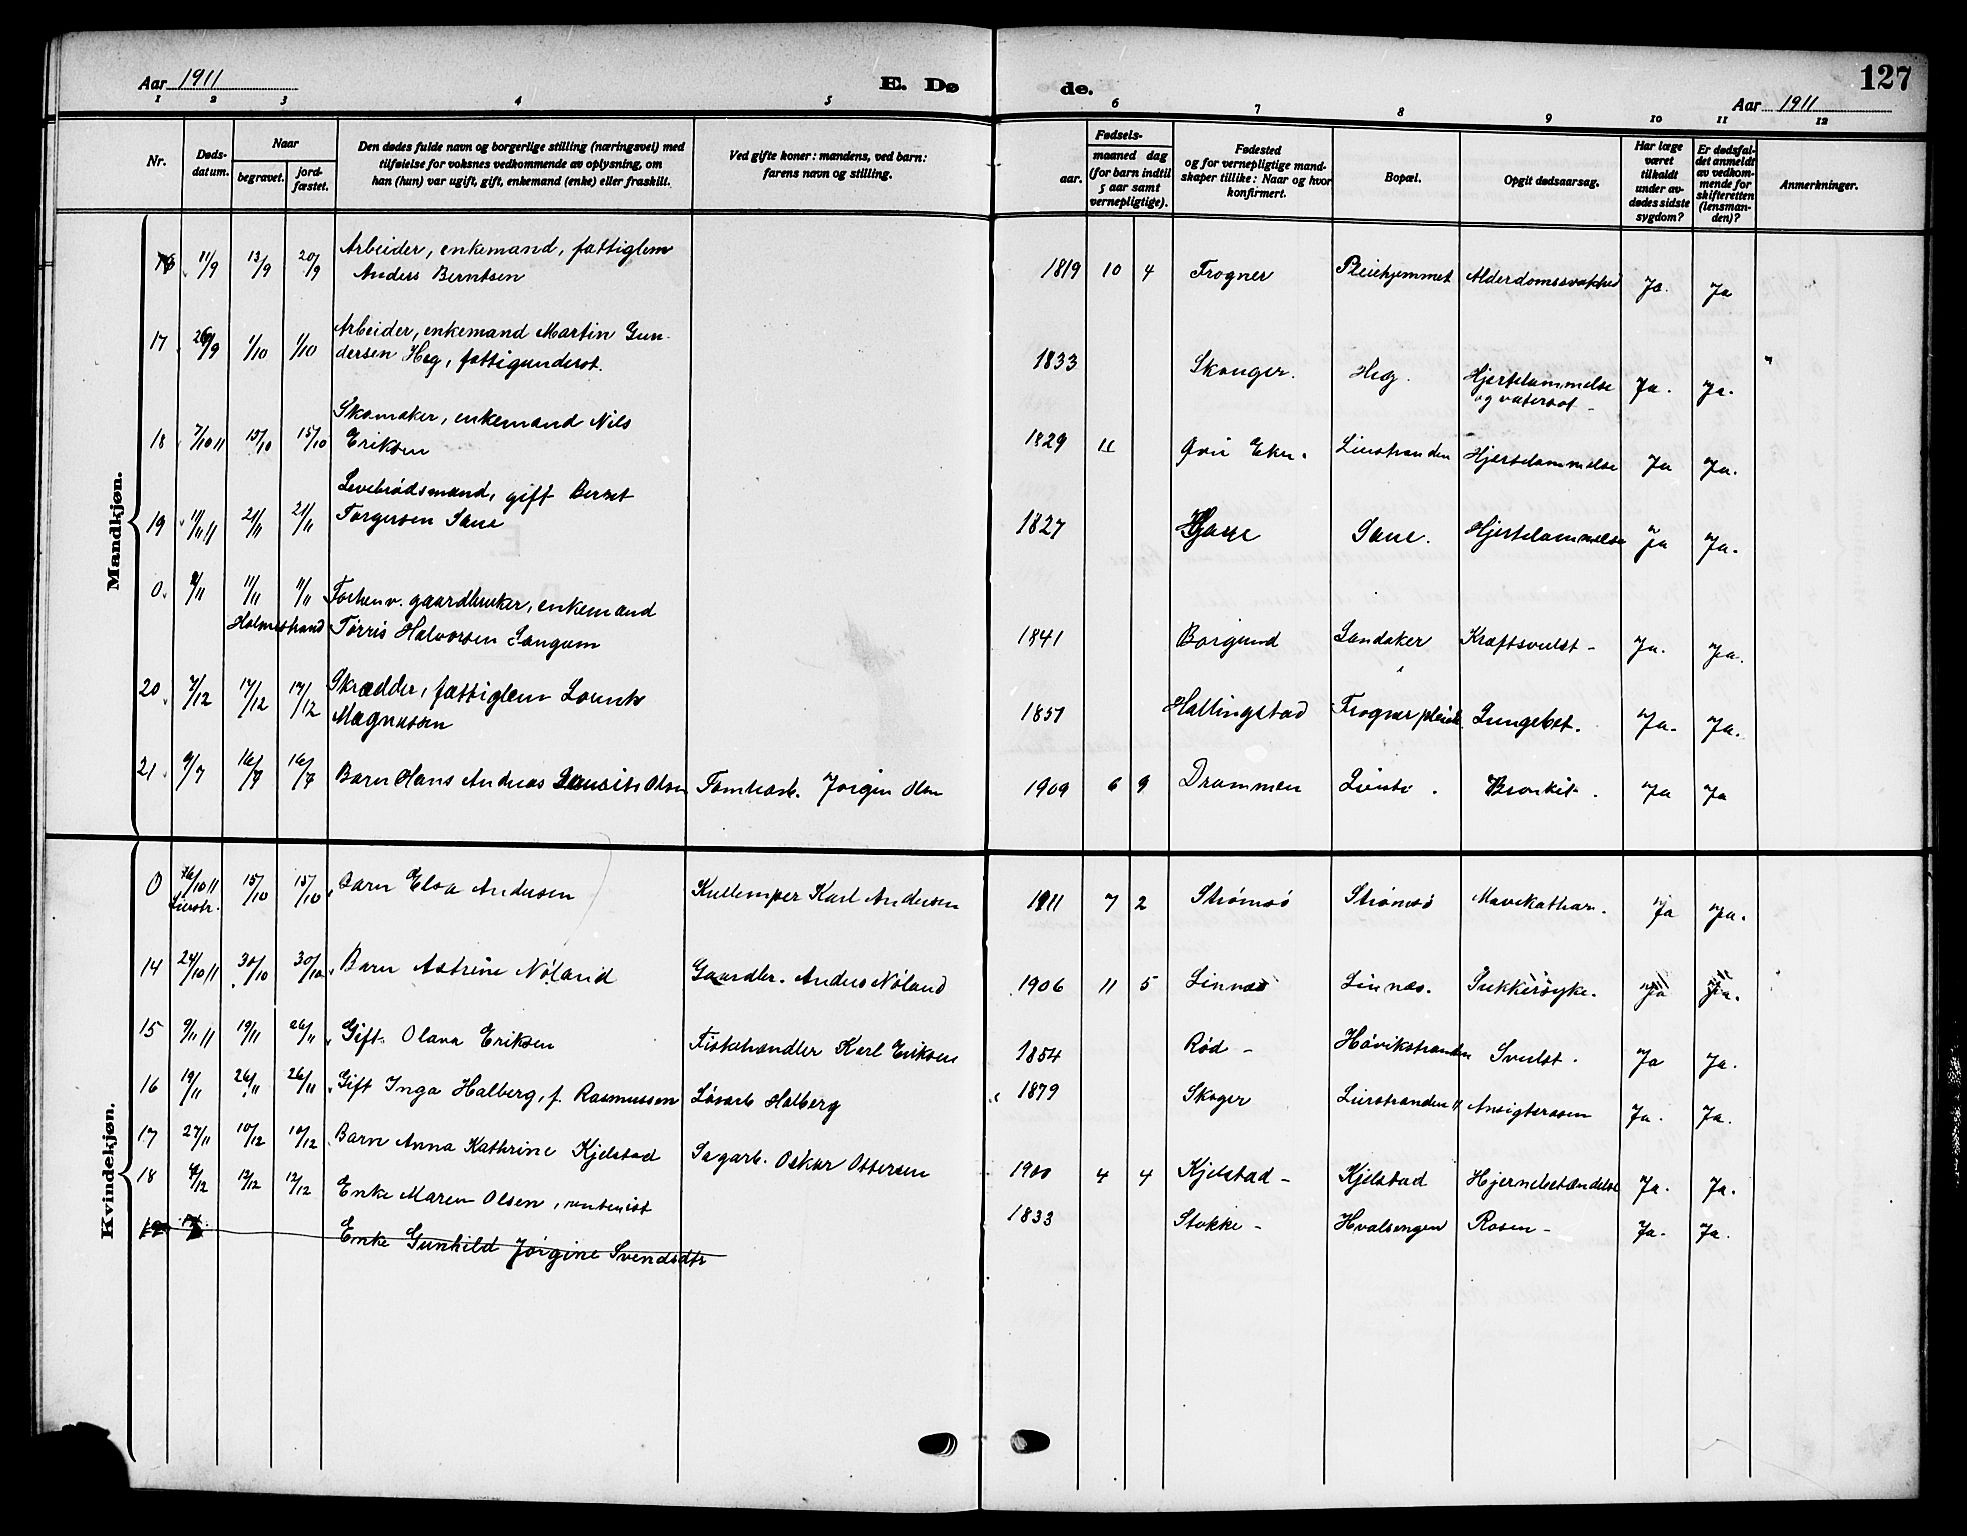 Aar 1911
E. Dø
de.
127
Aar 1911
1 2 3 4 5 6 7 8 9 10 11 12
Nr.
Døds-
datum.
Naar
begravet.
jord-
fæstet.
Den dødes fulde navn og borgerlige stilling (næringsvei) med
tilføielse for voksnes vedkommende av oplysning, om
han (hun) var ugift, gift, enkemand (enke) eller fraskilt.
Ved gifte koner: mandens, ved barn:
farens navn og stilling.
Fødsels-
aar.
maaned dag
(for barn indtil
5 aar samt
vernepligtige).
Fødested
og for vernepligtige mand-
skaper tillike: Naar og hvor
konfirmert.
Bopæl.
Opgit dødsaarsag.
Har læge
været
tilkaldt
under av-
dødes sidste
sygdom?
Er dødsfal-
det anmeldt
av vedkom-
mende for
skifteretten
(lensman-
den)?
Anmerkninger.
Mandkjøn.
16 11/9 13/9 20/9 Arbeider, enkemand, fattiglem
Anders Berntsen
1819 10 4 Frogner Pleiehjemmet Alderdomssvakhed Ja. Ja
17 26/9 1/10 1/10 Arbeider, enkemand Martin Gun-
dersen Heg, fattigunderst.
1833 Skouger. Heg. Hjertelammelse
og vatersot - Ja. Ja.
18 7/10 11 15/10 15/10 Skomaker, enkemand Nils
Eriksen
1829 11 Øvre Eker. Lierstranden Hjertelammelse Ja Ja.
19 11/11 11 21/11 21/11 Levebrødsmand, gift Bernt
Torgersen Saue
1827 Saue. Hjertelammelse Ja Ja.
0. 9/11 11/11 11/11 Forhenv. gaardbruker, enkemand
Holmestrand Tørris Halvorsen Langum
1841 Borgund Landaker Kræftsvulst - Ja. Ja.
20 7/12 17/12 17/12 Skrædder, fattiglem Lorents
Magnussen
1857 Hallingstad Frogner pleieh. Lungebet. Ja. Ja.
21 9/7 16/7 16/7 Barn Hans Andreas Olsen Tomtearb. Jørgen Olsen
1909 6 9 Drammen Lierstr. Bronkit. Ja Ja
Kvindekjøn.
0 10/10 11 15/10 15/10 Barn Elsa Andersen Kullemper Karl Andersen
Lierstr.
1911 7 2 Strømsö Strømsö Mavekatharr. Ja Ja.
14 24/10 11 30/10 30/10 Barn Astrine Nøland Gaardbr. Anders Nøland
1906 11 5 Linnæs Linnæs. Sukkersyke. Ja Ja.
15 9/11 11 19/11 26/11 Gift Olava Eriksen Fiskehandler Karl Eriksen
1854 Rød - Høvikstranden Svulst. Ja Ja.
16 19/11 26/11 26/11 Gift Inga Halberg, f. Rasmussen Løsarb Halberg
1879 Skoger Lierstranden Ansigtsrosen Ja. Ja.
17 27/11 10/12 10/12 Barn Anna Kathrine Kjelstad Sagarb. Oskar Ottersen
1900 4 4 Kjelstad - Kjelstad Hjernebetændelse Ja. Ja.
18 4/12 12/12 12/12 Enke Maren Olsen, rentenist
1833 Stokke - Hvalsengen Rosen - Ja. Ja.
19 Enke Gunhild Jørgine Svendsdtr